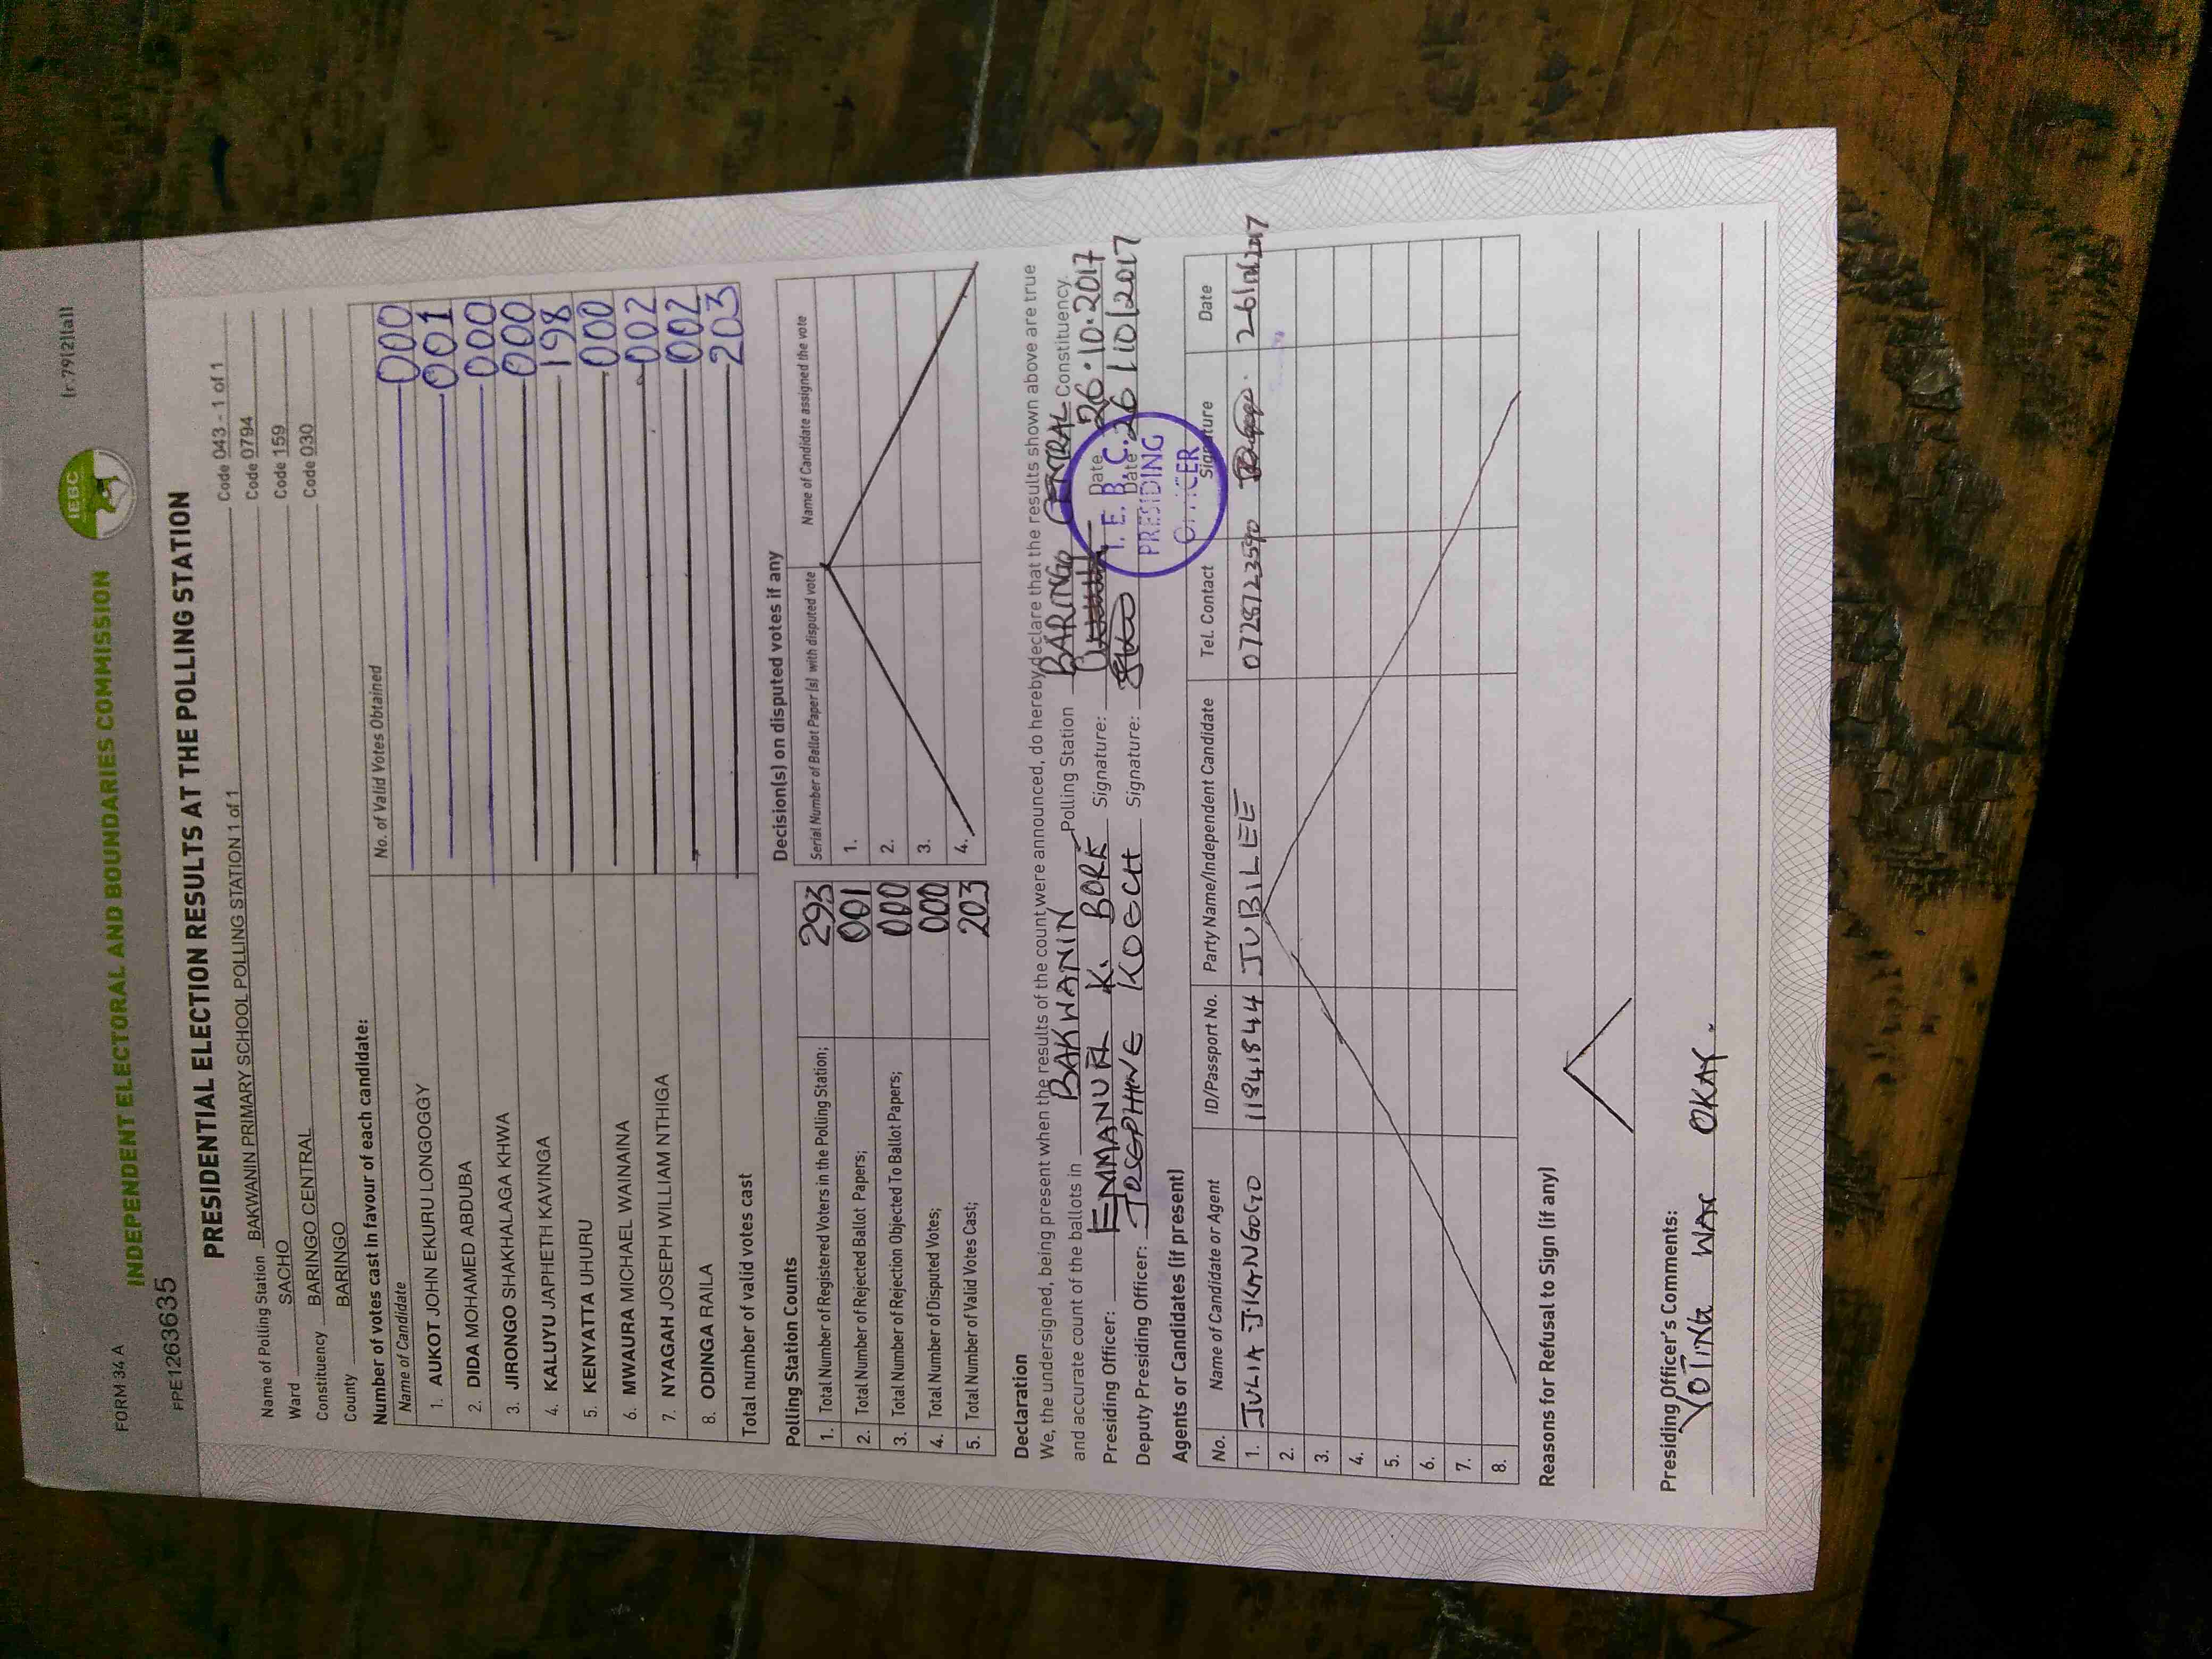 FORM 34 A
INDEPENDENT ELECTORAL AND BOUNDARIES COMMISSION
IEBC
(r.79(2)(a))
PPE1263635
PRESIDENTIAL ELECTION RESULTS AT THE POLLING STATION
Name of Polling Station BAKWANIN PRIMARY SCHOOL POLLING STATION 1 of 1 Code 043 - 1 of 1
Ward SACHO Code 0794
Constituency BARINGO CENTRAL Code 159
County BARINGO Code 030
Number of votes cast in favour of each candidate:
Name of Candidate No. of Valid Votes Obtained
1. AUKOT JOHN EKURU LONGOGGY 000
2. DIDA MOHAMED ABDUBA 001
3. JIRONGO SHAKHALAGA KHWA 000
4. KALUYU JAPHETH KAVINGA 000
5. KENYATTA UHURU 198
6. MWAURA MICHAEL WAINAINA 000
7. NYAGAH JOSEPH WILLIAM NTHIGA 002
8. ODINGA RAILA 002
Total number of valid votes cast 203
Polling Station Counts
1. Total Number of Registered Voters in the Polling Station; 293
2. Total Number of Rejected Ballot Papers; 001
3. Total Number of Rejection Objected To Ballot Papers; 000
4. Total Number of Disputed Votes; 000
5. Total Number of Valid Votes Cast; 203
Decision(s) on disputed votes if any
Serial Number of Ballot Paper(s) with disputed vote Name of Candidate assigned the vote
1.
2.
3.
4.
Declaration
We, the undersigned, being present when the results of the count were announced, do hereby declare that the results shown above are true
and accurate count of the ballots in BAKWANIN Polling Station BARINGO CENTRAL Constituency.
Presiding Officer: EMMANUEL K. BORE Signature: Date 26.10.2017
Deputy Presiding Officer: JOSEPHINE KOECH Signature: Date 26/10/2017
I. E. B. C.
PRESIDING
OFFICER
Agents or Candidates (if present)
No. Name of Candidate or Agent ID/Passport No. Party Name/Independent Candidate Tel. Contact Signature Date
1. JULIA J. KANGOGO 11841844 JUBILEE 0728723590 26/10/2017
2.
3.
4.
5.
6.
7.
8.
Reasons for Refusal to Sign (if any)
Presiding Officer's Comments:
VOTING WAS OKAY.